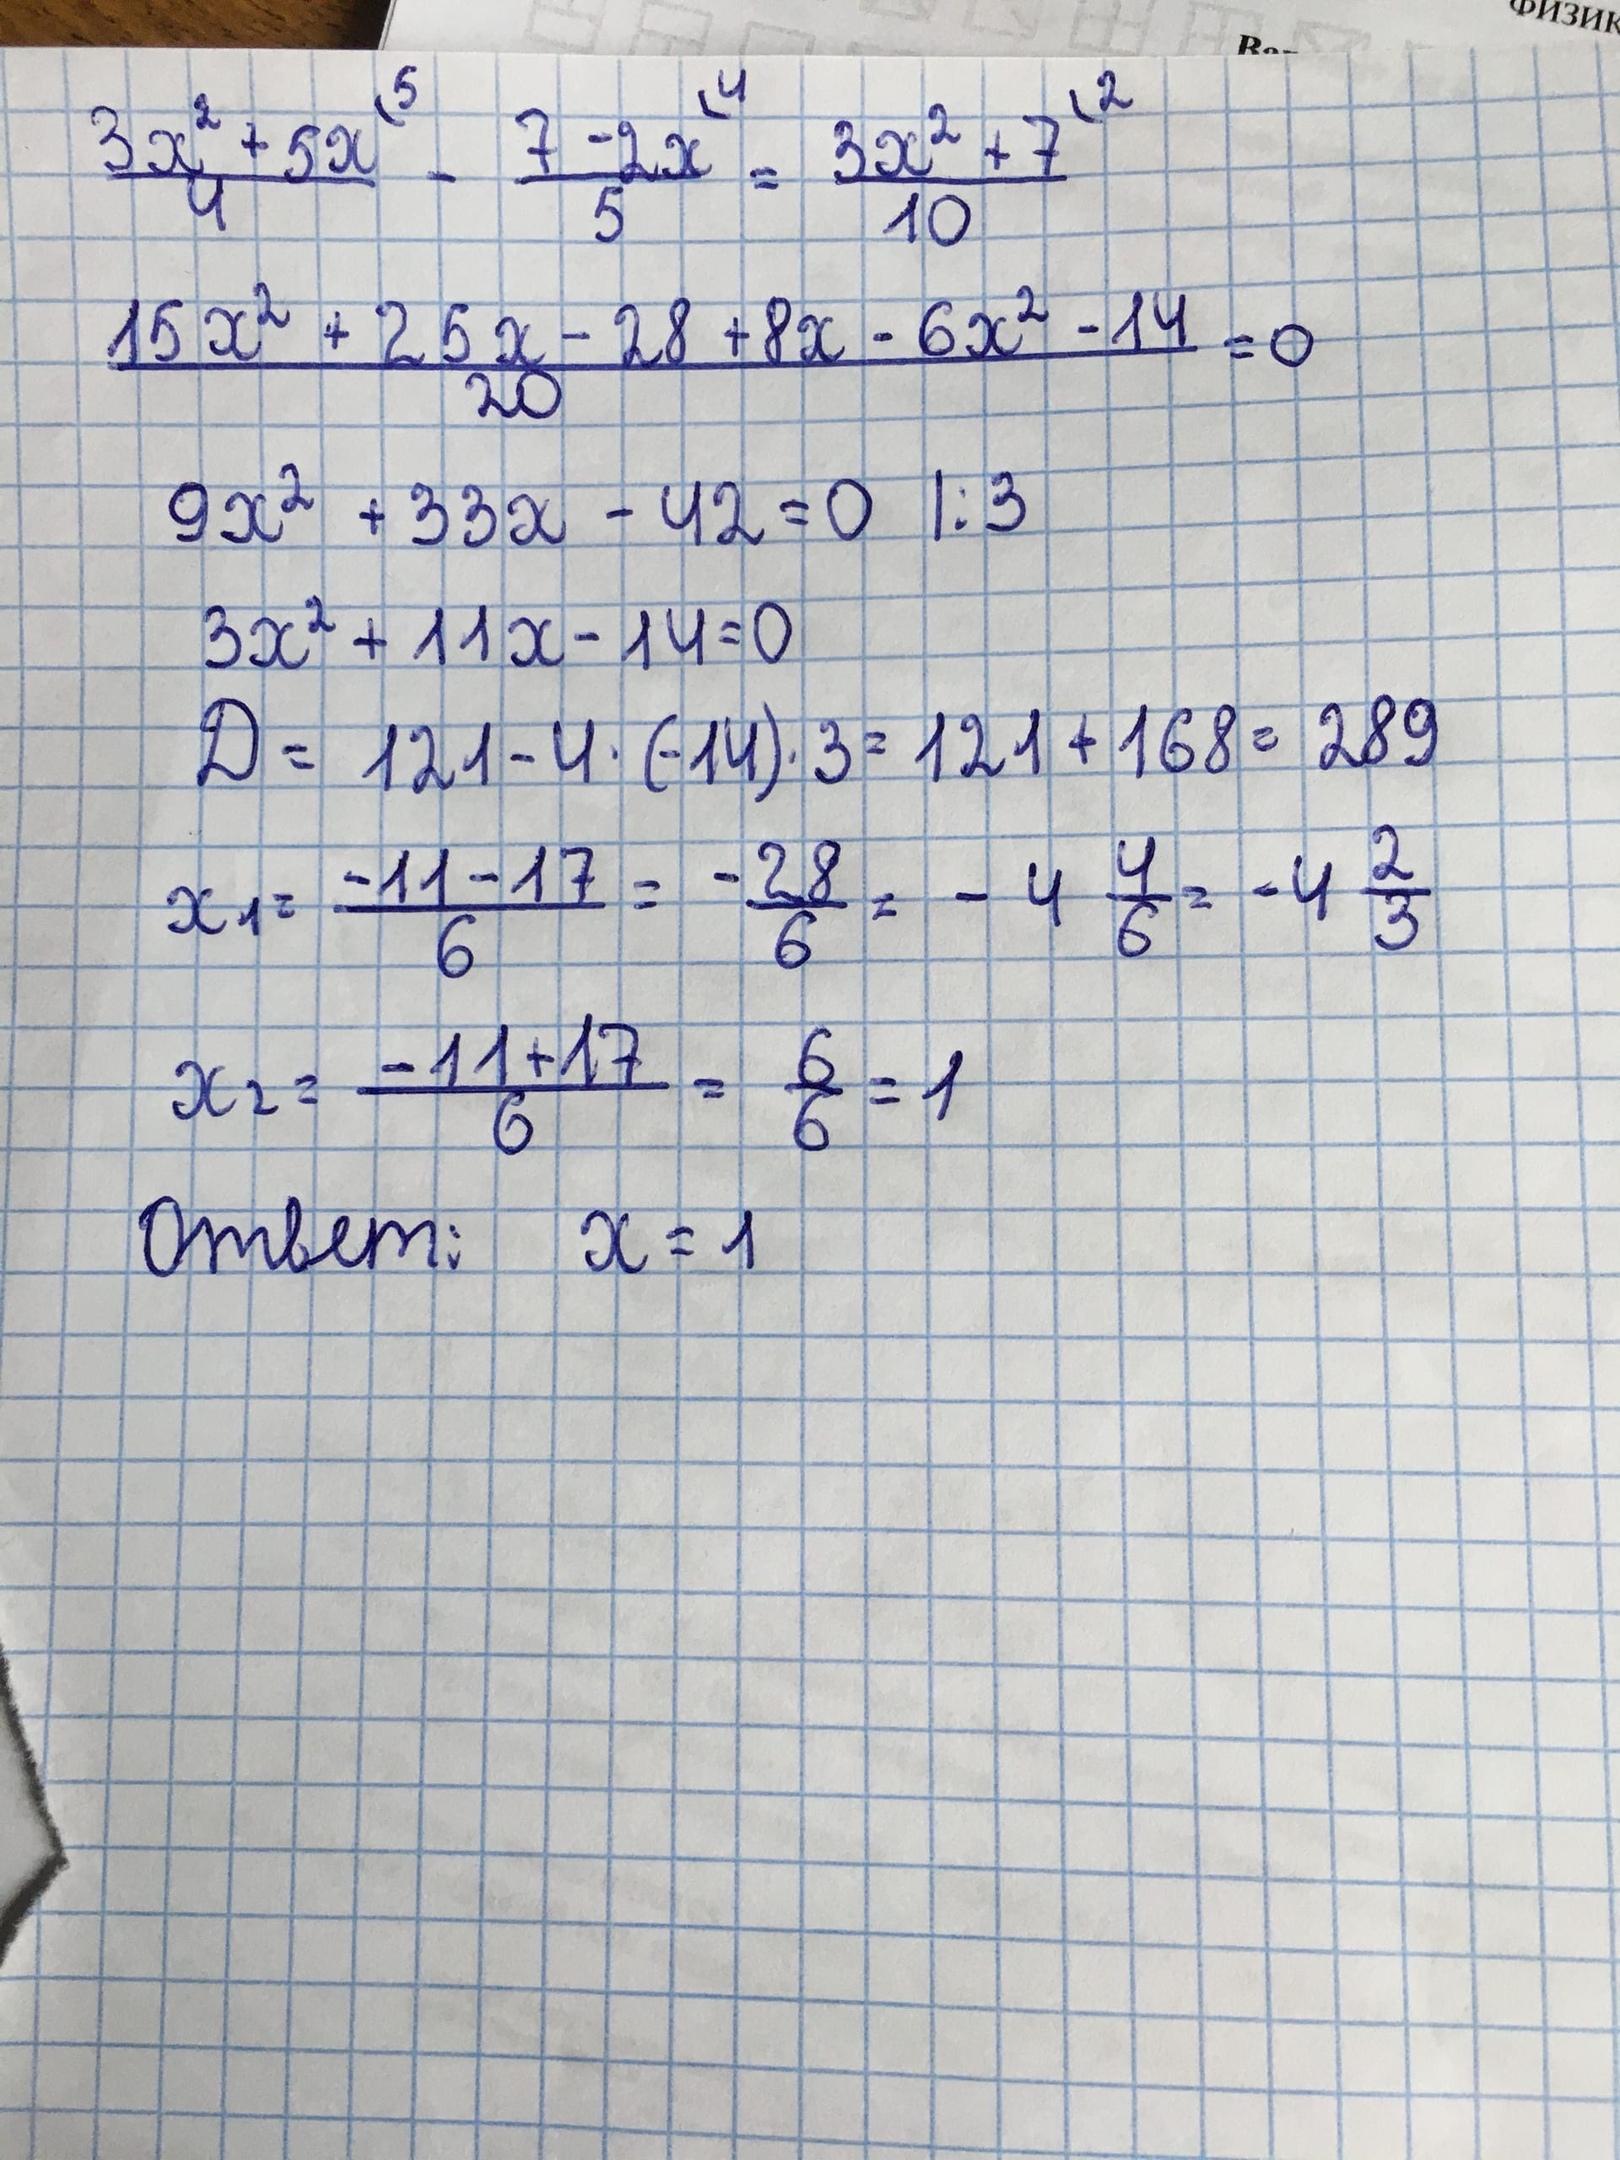 ФИЗИК
Ва
(3x² + 5x)/4 \5 - (7 - 2x)/5 \4 = (3x² + 7)/10 \2
(15x² + 25x - 28 + 8x - 6x² - 14)/20 = 0
9x² + 33x - 42 = 0 |:3
3x² + 11x - 14 = 0
D = 121 - 4 · (-14) · 3 = 121 + 168 = 289
x₁ = (-11 - 17)/6 = -28/6 = -4 4/6 = -4 2/3
x₂ = (-11 + 17)/6 = 6/6 = 1
Ответ: x = 1